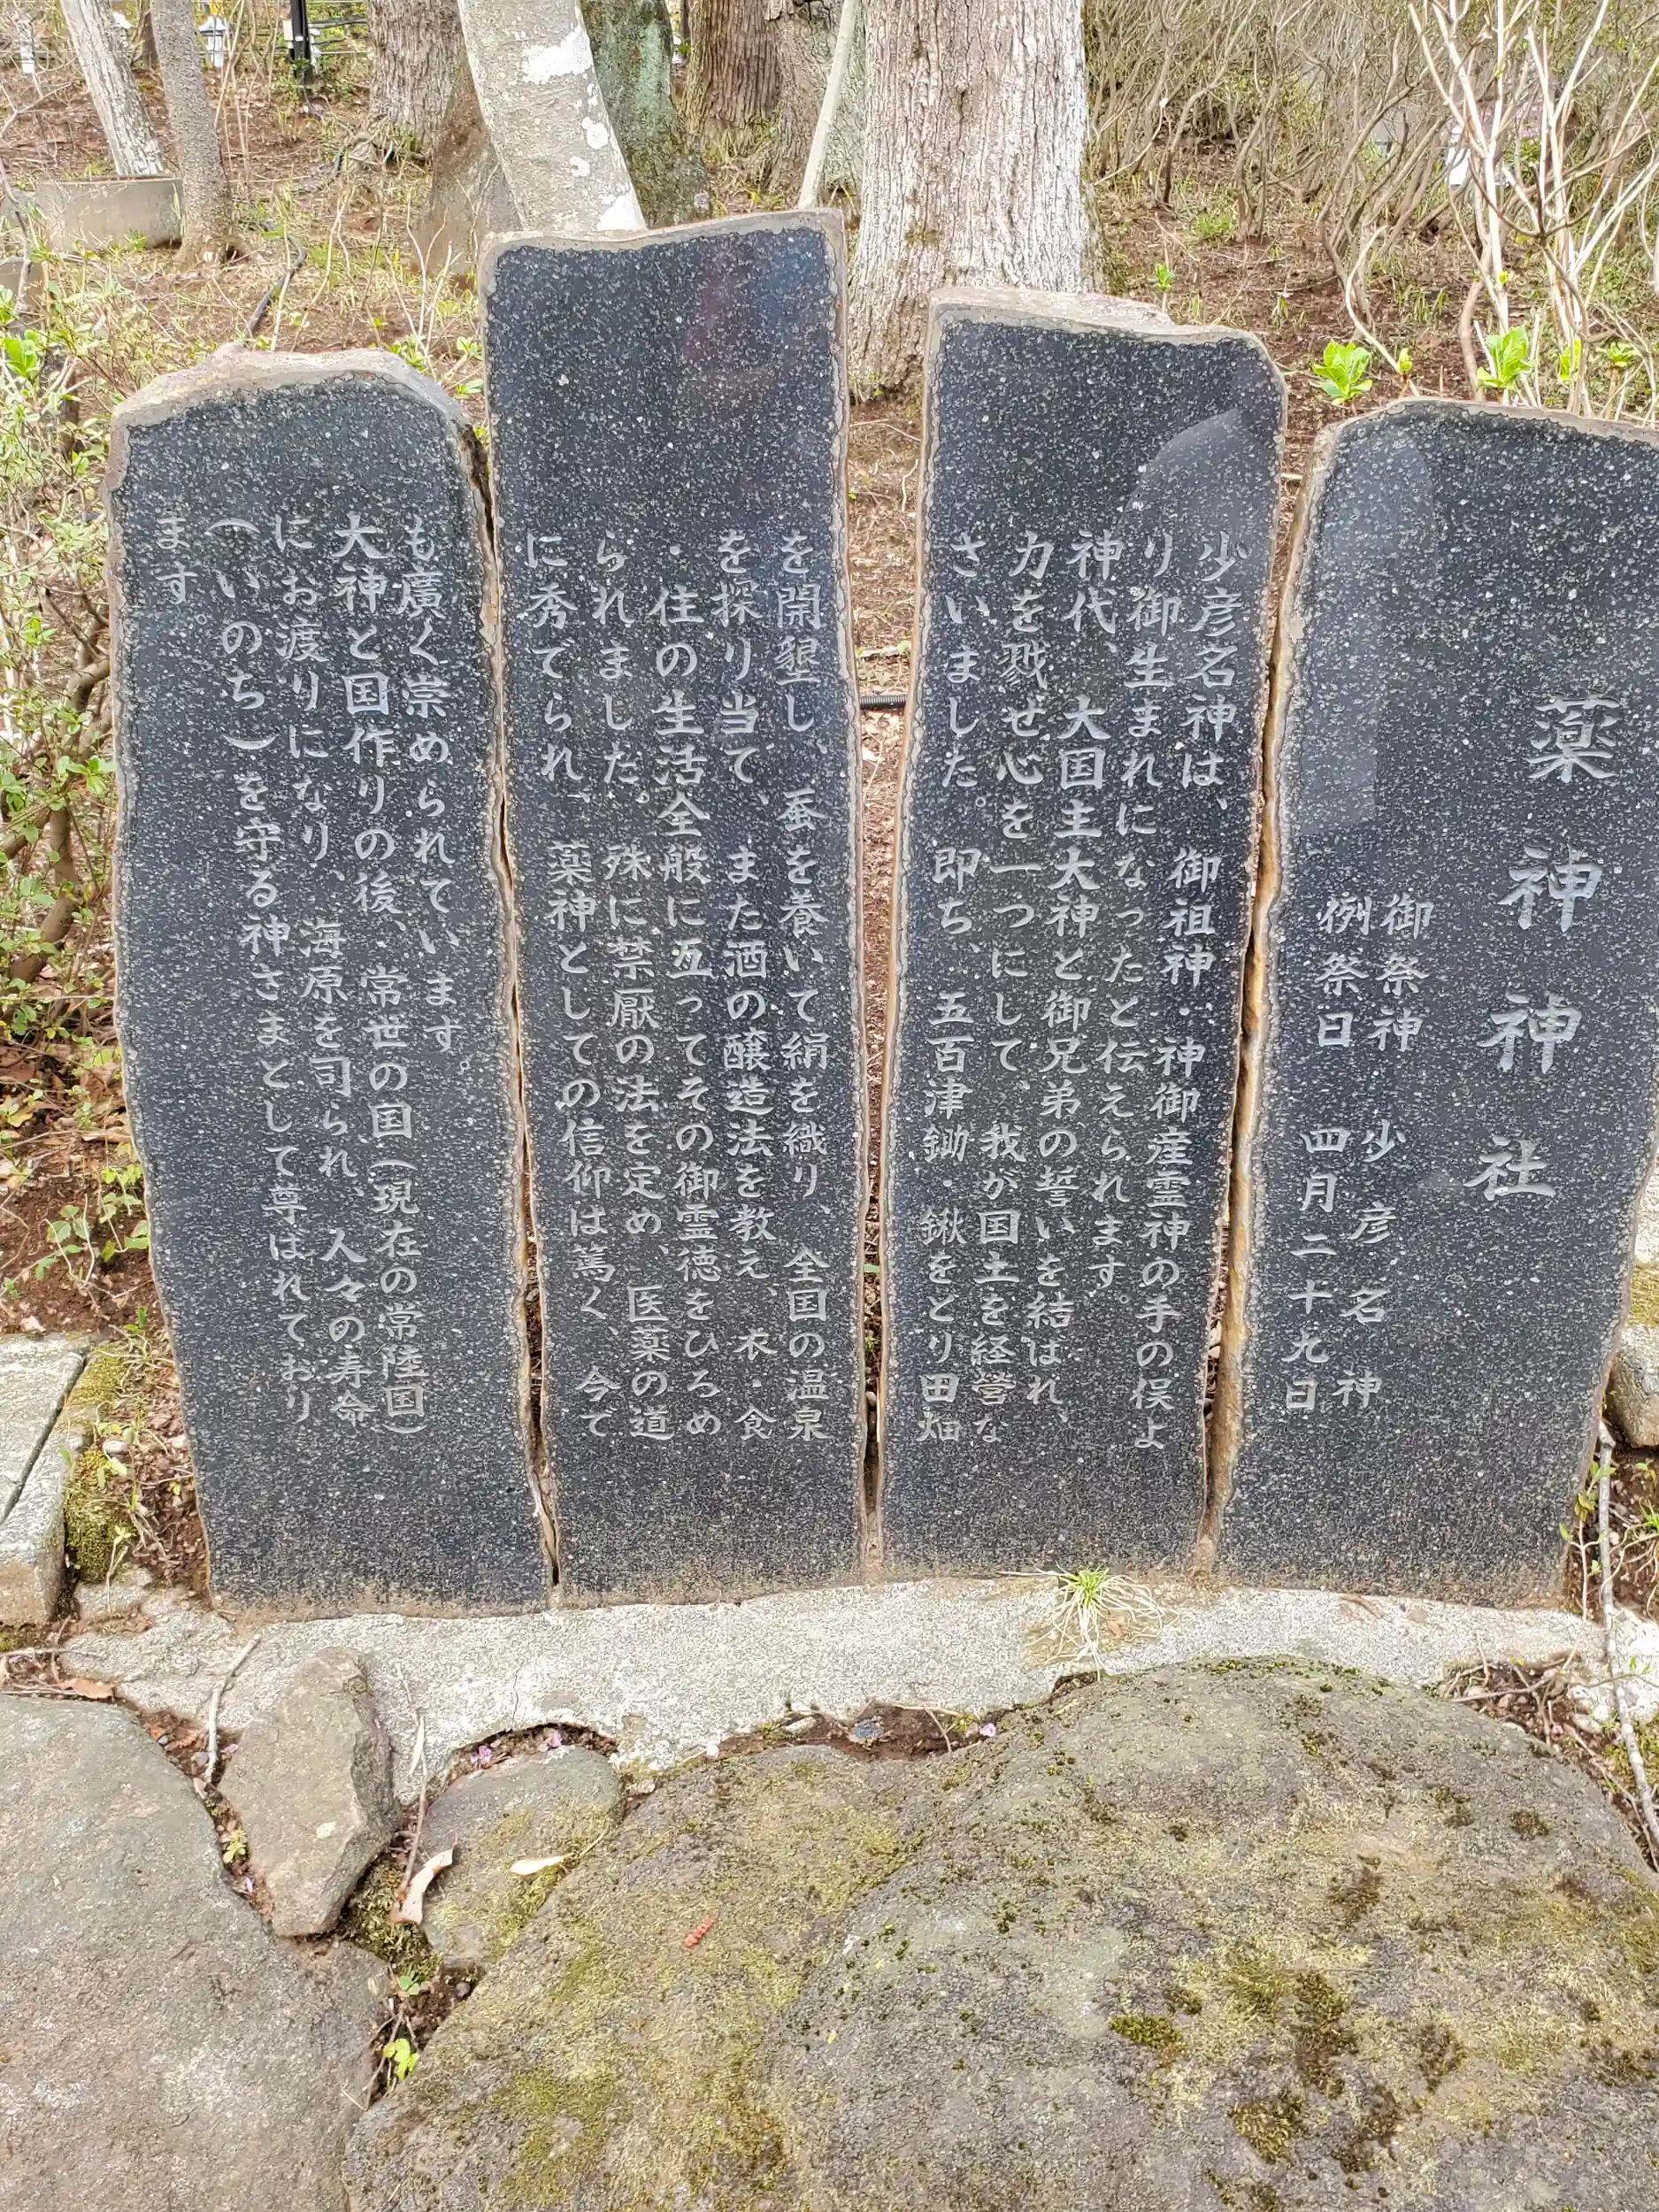 薬神神社
御祭神 少彦名神
例祭日 四月二十九日
少彦名神は、御祖神・神御産霊神の手の俣よ
り御生まれになったと伝えられます。
神代、大国主大神と御兄弟の誓いを結ばれ、
力を戮せ心を一つにして、我が国土を経営な
さいました。即ち、五百津鋤・鍬をとり田畑
を開墾し、蚕を養いて絹を織り、全国の温泉
を探り当て、また酒の醸造法を教え、衣・食
・住の生活全般に亙ってその御霊徳をひろめ
られました。殊に禁厭の法を定め、医薬の道
に秀でられ、薬神としての信仰は篤く、今で
も廣く崇められています。
大神と国作りの後、常世の国(現在の常陸国)
にお渡りになり、海原を司られ、人々の寿命
(いのち)を守る神さまとして尊ばれており
ます。